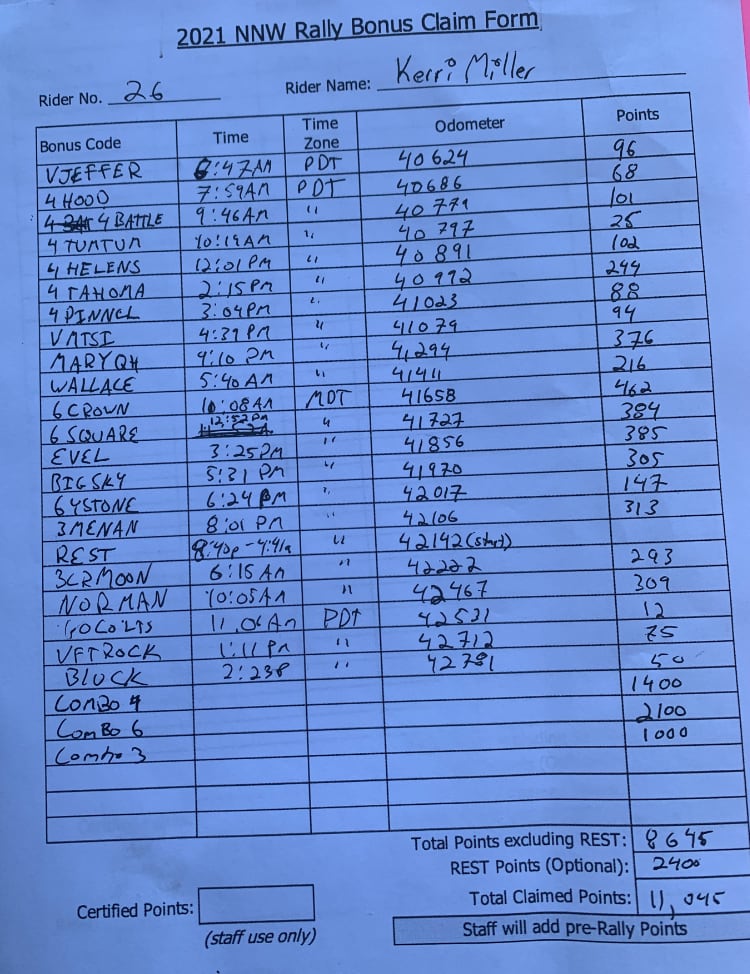 2021 NNW Rally Bonus Claim Form
Rider No. 26 Rider Name: Kerri Miller
Bonus Code Time Time Zone Odometer Points
VJEFFER 6:47AM PDT 40624 96
4 HOOD 7:59AM PDT 40686 68
4 4 BATTLE 9:46AM " 40779 101
4 TUMTUM 10:19AM " 40797 25
4 HELENS 12:01 PM " 40891 102
4 TAHOMA 2:15PM " 40992 244
4 PINNCL 3:04PM " 41023 88
VMTSI 4:39 PM " 41079 94
MARYQH 9:10 PM " 41294 376
WALLACE 5:40 AM " 41411 216
6 CROWN 10:08AM MDT 41658 462
6 SQUARE 12:52PM " 41727 384
EVEL 3:25PM " 41856 385
BIGSKY 5:31 PM " 41970 305
6YSTONE 6:24 PM " 42017 147
3MENAN 8:01 PM " 42106 313
REST 8:40p-4:41a " 42142(start)
3CRMOON 6:15 AM " 42222 293
NORMAN 10:05AM " 42467 309
GOCOLTS 11:06 AM PDT 42531 12
VETROCK 1:11 PM " 42712 75
BLOCK 2:23P " 42781 50
COMBO 4 1400
COMBO 6 2100
Combo 3 1000
Total Points excluding REST: 8645
REST Points (Optional): 2400
Total Claimed Points: 11,045
Certified Points:
(staff use only)
Staff will add pre-Rally Points